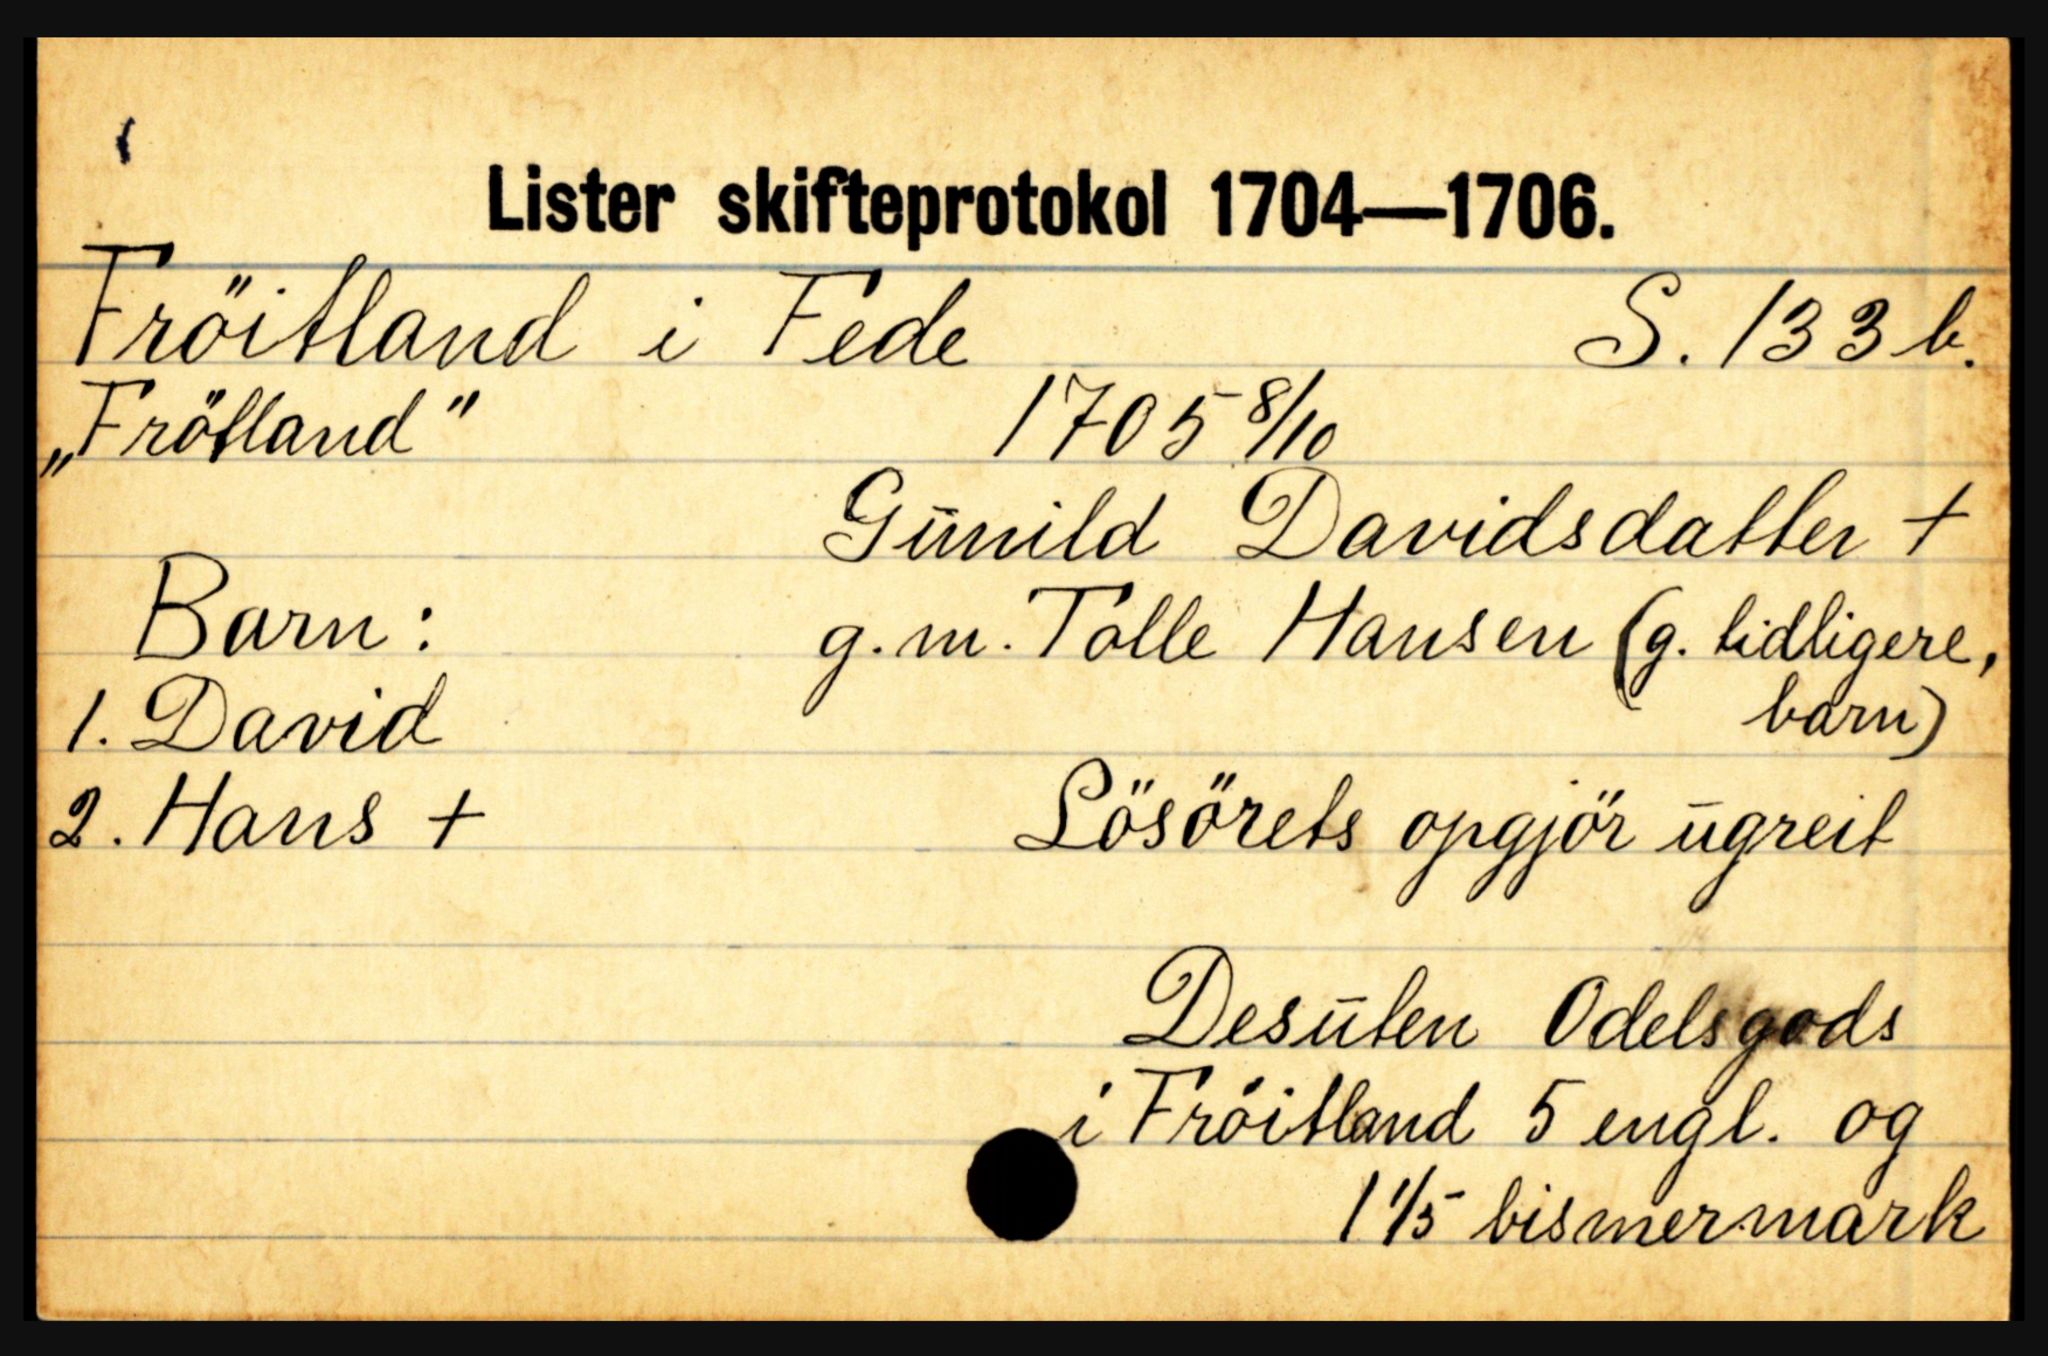 Lister skifteprotokol 1704—1706.
Fröitland i Fede S. 133 b.
„Frötland" 1705 8/10
Gūnild Davidsdatter +
Barn: g.m. Tolle Hansen (g. tidligere,
1. David barn)
2. Hans + Lösörets opgjör ūgreit
Desūten Odelsgods
i Fröitland 5 engl. og
1 1/5 bismermark